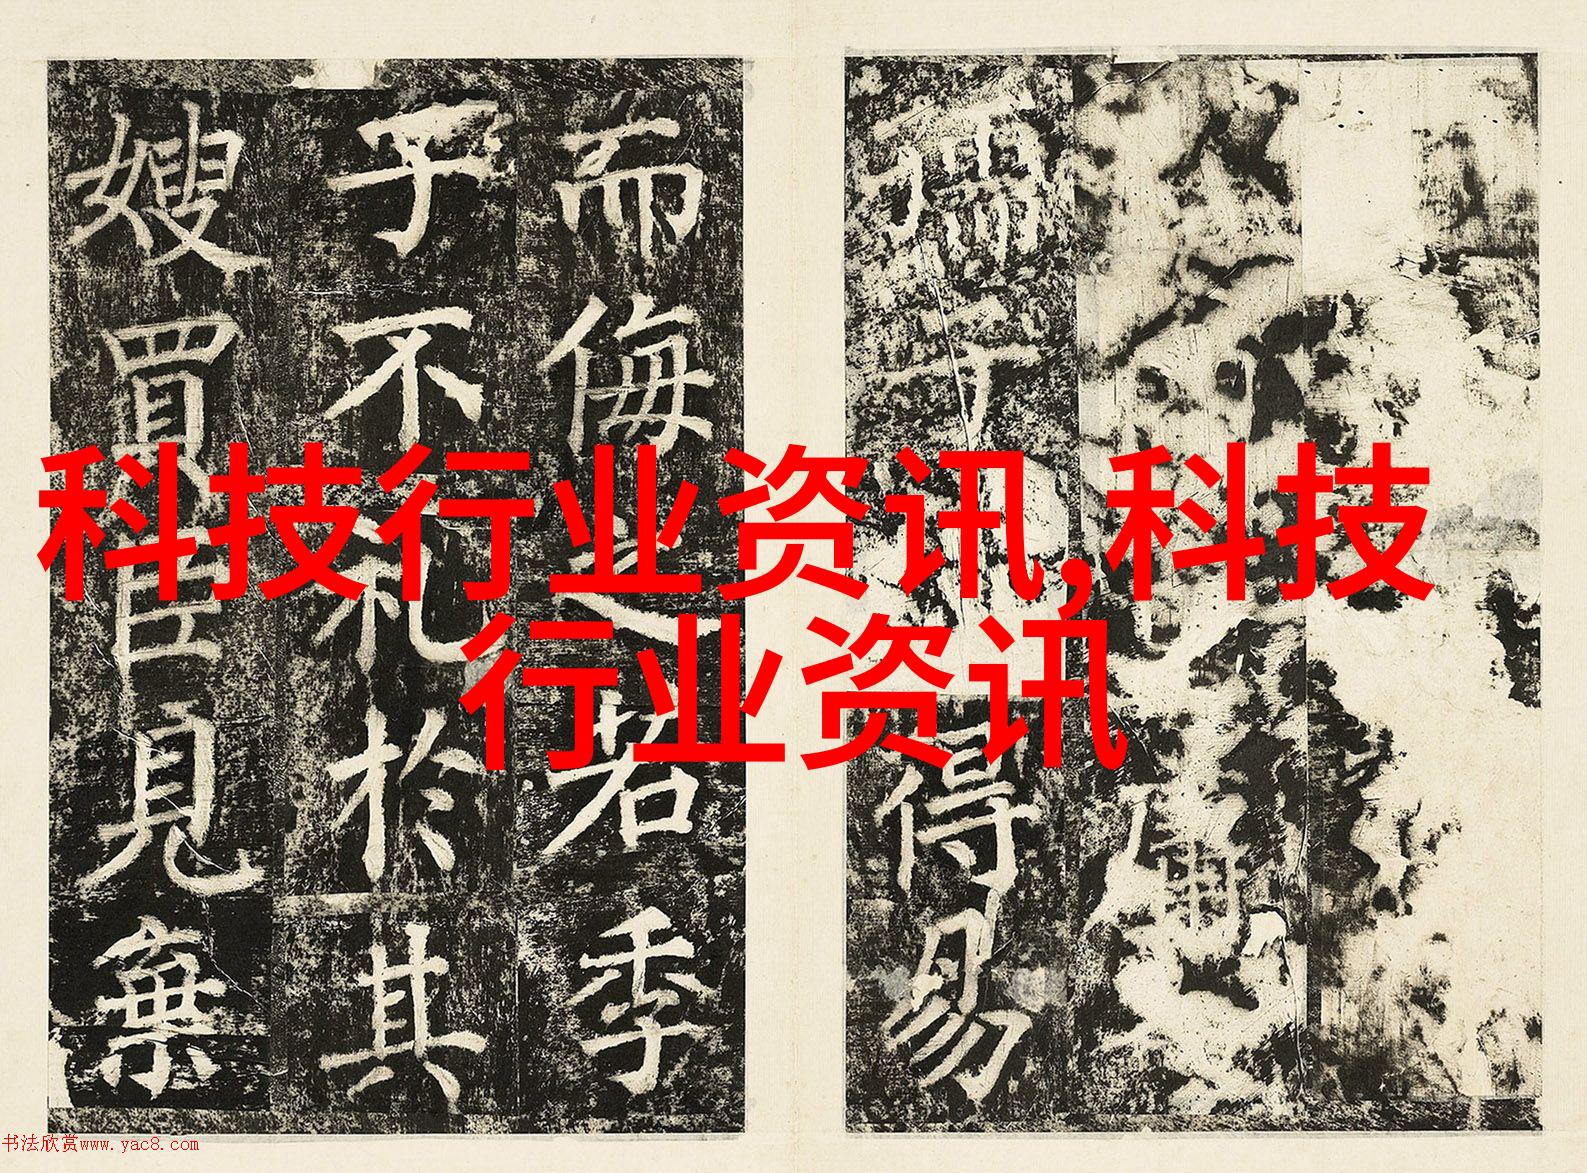 科技行业资讯,科技
行业资讯
孺子得易
而侮之若季
子不礼於其
嫂買臣見棄
书法欣赏www.yac8.com